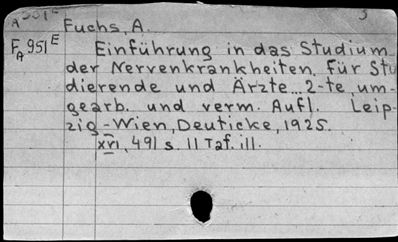 Fuchs, A.
F A 951 E
Einführung in das Studium
der Nervenkrankheiten. Für Stu
dierende und Ärzte... 2-te, um-
gearb. und verm. Aufl. Leip-
zig-Wien, Deuticke, 1925.
XVI, 491 s. 11 Taf. ill.